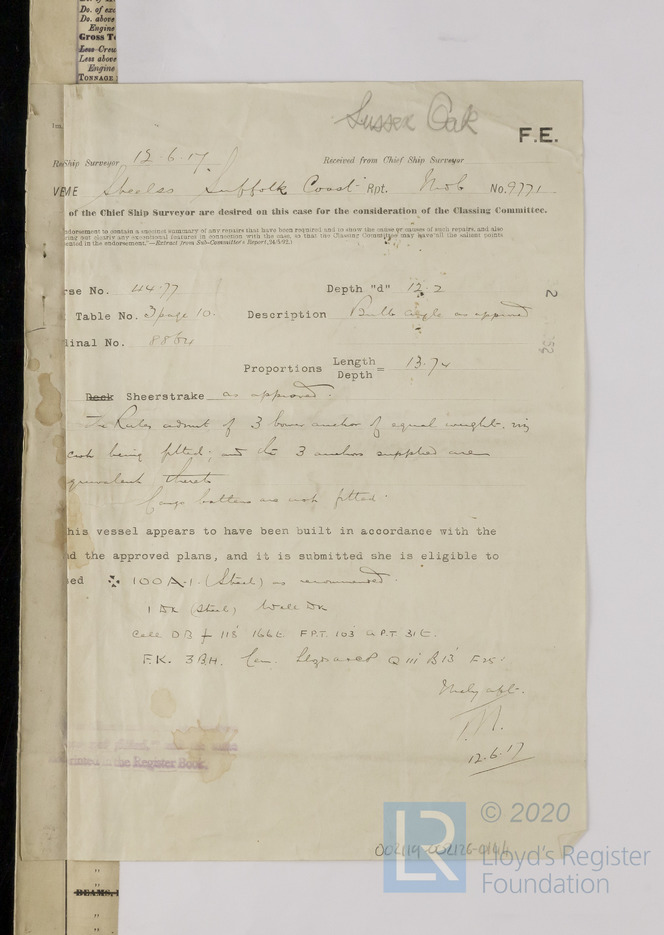 Do. of
Do. above
Engine
GROSS T
Less Crew
Less above
Engine
TONNAGE
Sussex Oak
F.E.
Ship Surveyor 12.6.17 Received from Chief Ship Surveyor
Suffolk Coast Rpt. No. 9771
of the Chief Ship Surveyor are desired on this case for the consideration of the Classing Committee.
ndorsement to contain a succinct summary of any repairs that have been required and to show the cause or causes of such repairs, and also
ing out clearly any exceptional features in connexion with the case, so that the Classing Committee may have all the salient points
ented in the endorsement."—Extract from Sub-Committee's Report,
rse No. 4477 Depth "d" 12.2
Table No. 3 page 10. Description Bulb angle as approved
dinal No. 8864
Proportions Length Depth = 13.74
Deck Sheerstrake as approved.
The Rules admit of 3 bower anchors of equal weight
being fitted; and the 3 anchors supplied are
equivalent thereto
Cargo battens are not fitted.
his vessel appears to have been built in accordance with the
d the approved plans, and it is submitted she is eligible to
ed ✠ 100A.1. (Steel) as recommended.
1 Dk (Steel) Well Dk
Cell DB 118' 166t FPT. 103 APT. 31t.
F.K. 3BH. B13' F25'
12.6.17
in the Register Book.
© 2020
LR
Lloyd's Register
Foundation
BEAMS,